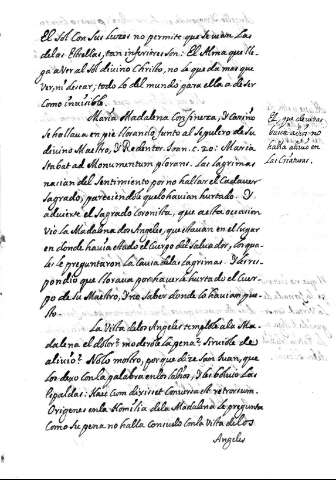 El Sol con sus luzes no permite que se vean las
de las estrellas, tan inferiores son: El Alma que lle-
ga a ver al Sol divino Christo, no le queda mas que
ver, ni desear; todo lo del mundo para ella a de ser
como invisible.
Maria Madalena con fineza, y cariño
se hallava en pie llorando junto al sepulcro de su
divino Maestro, y Redentor. Ioan. c. 20: Maria
stabat ad Monumentum plorans. Las lagrimas
nacian del sentimiento por no hallar el Cadaver
sagrado, pareciendole que lo havian hurtado. Y
advierte el sagrado Coronista, que a esta ocasion
vio la Madalena dos Angeles, que estavan en el lugar
en donde havia estado el Cuerpo del Salvador, los qua-
les le preguntaron la causa de las lagrimas. Y res-
pondio que llorava por haver hurtado el Cuer-
po de su Maestro, y no saber donde lo havian pue-
sto.
La vista de los Angeles templole a la Ma-
dalena el dolor? moderole la pena? sirviole de
alivio? No lo mostro, porque dize San Juan, que
los dexo con la palabra en los labios, y les bolvio las
espaldas: Haec cum dixisset conversa est retrorsum.
Origenes en la Homilia de la Madalena le pregunta
como su pena no halla consuelo con la vista de los
Angeles
El que de veras
busca a Dios no
halla alivio en
las Criaturas.